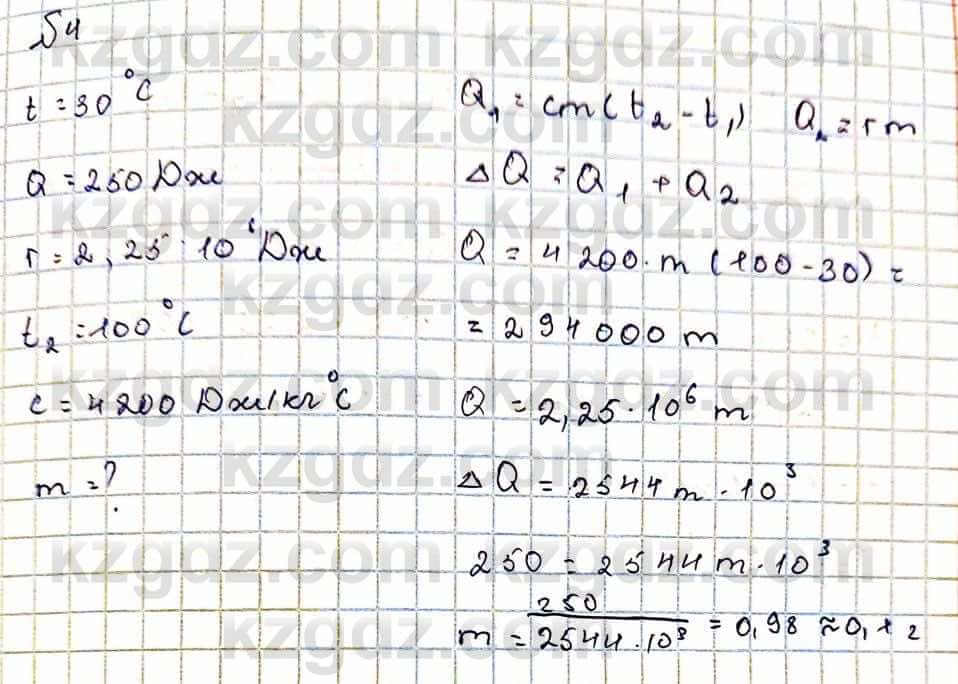 №4
t = 30°C
Q = 250 Дж
r = 2,25 · 10⁶ Дж
t₂ = 100°C
c = 4200 Дж/кг°C
m = ?
Q₁ = cm(t₂ - t₁) Q₂ = rm
ΔQ = Q₁ + Q₂
Q = 4200 · m (100 - 30) =
= 294000 m
Q = 2,25 · 10⁶ m
ΔQ = 2544 m · 10³
250 = 2544 m · 10³
m = 250 / 2544 · 10³ = 0,98 ≈ 0,1 г
kzgdz.com